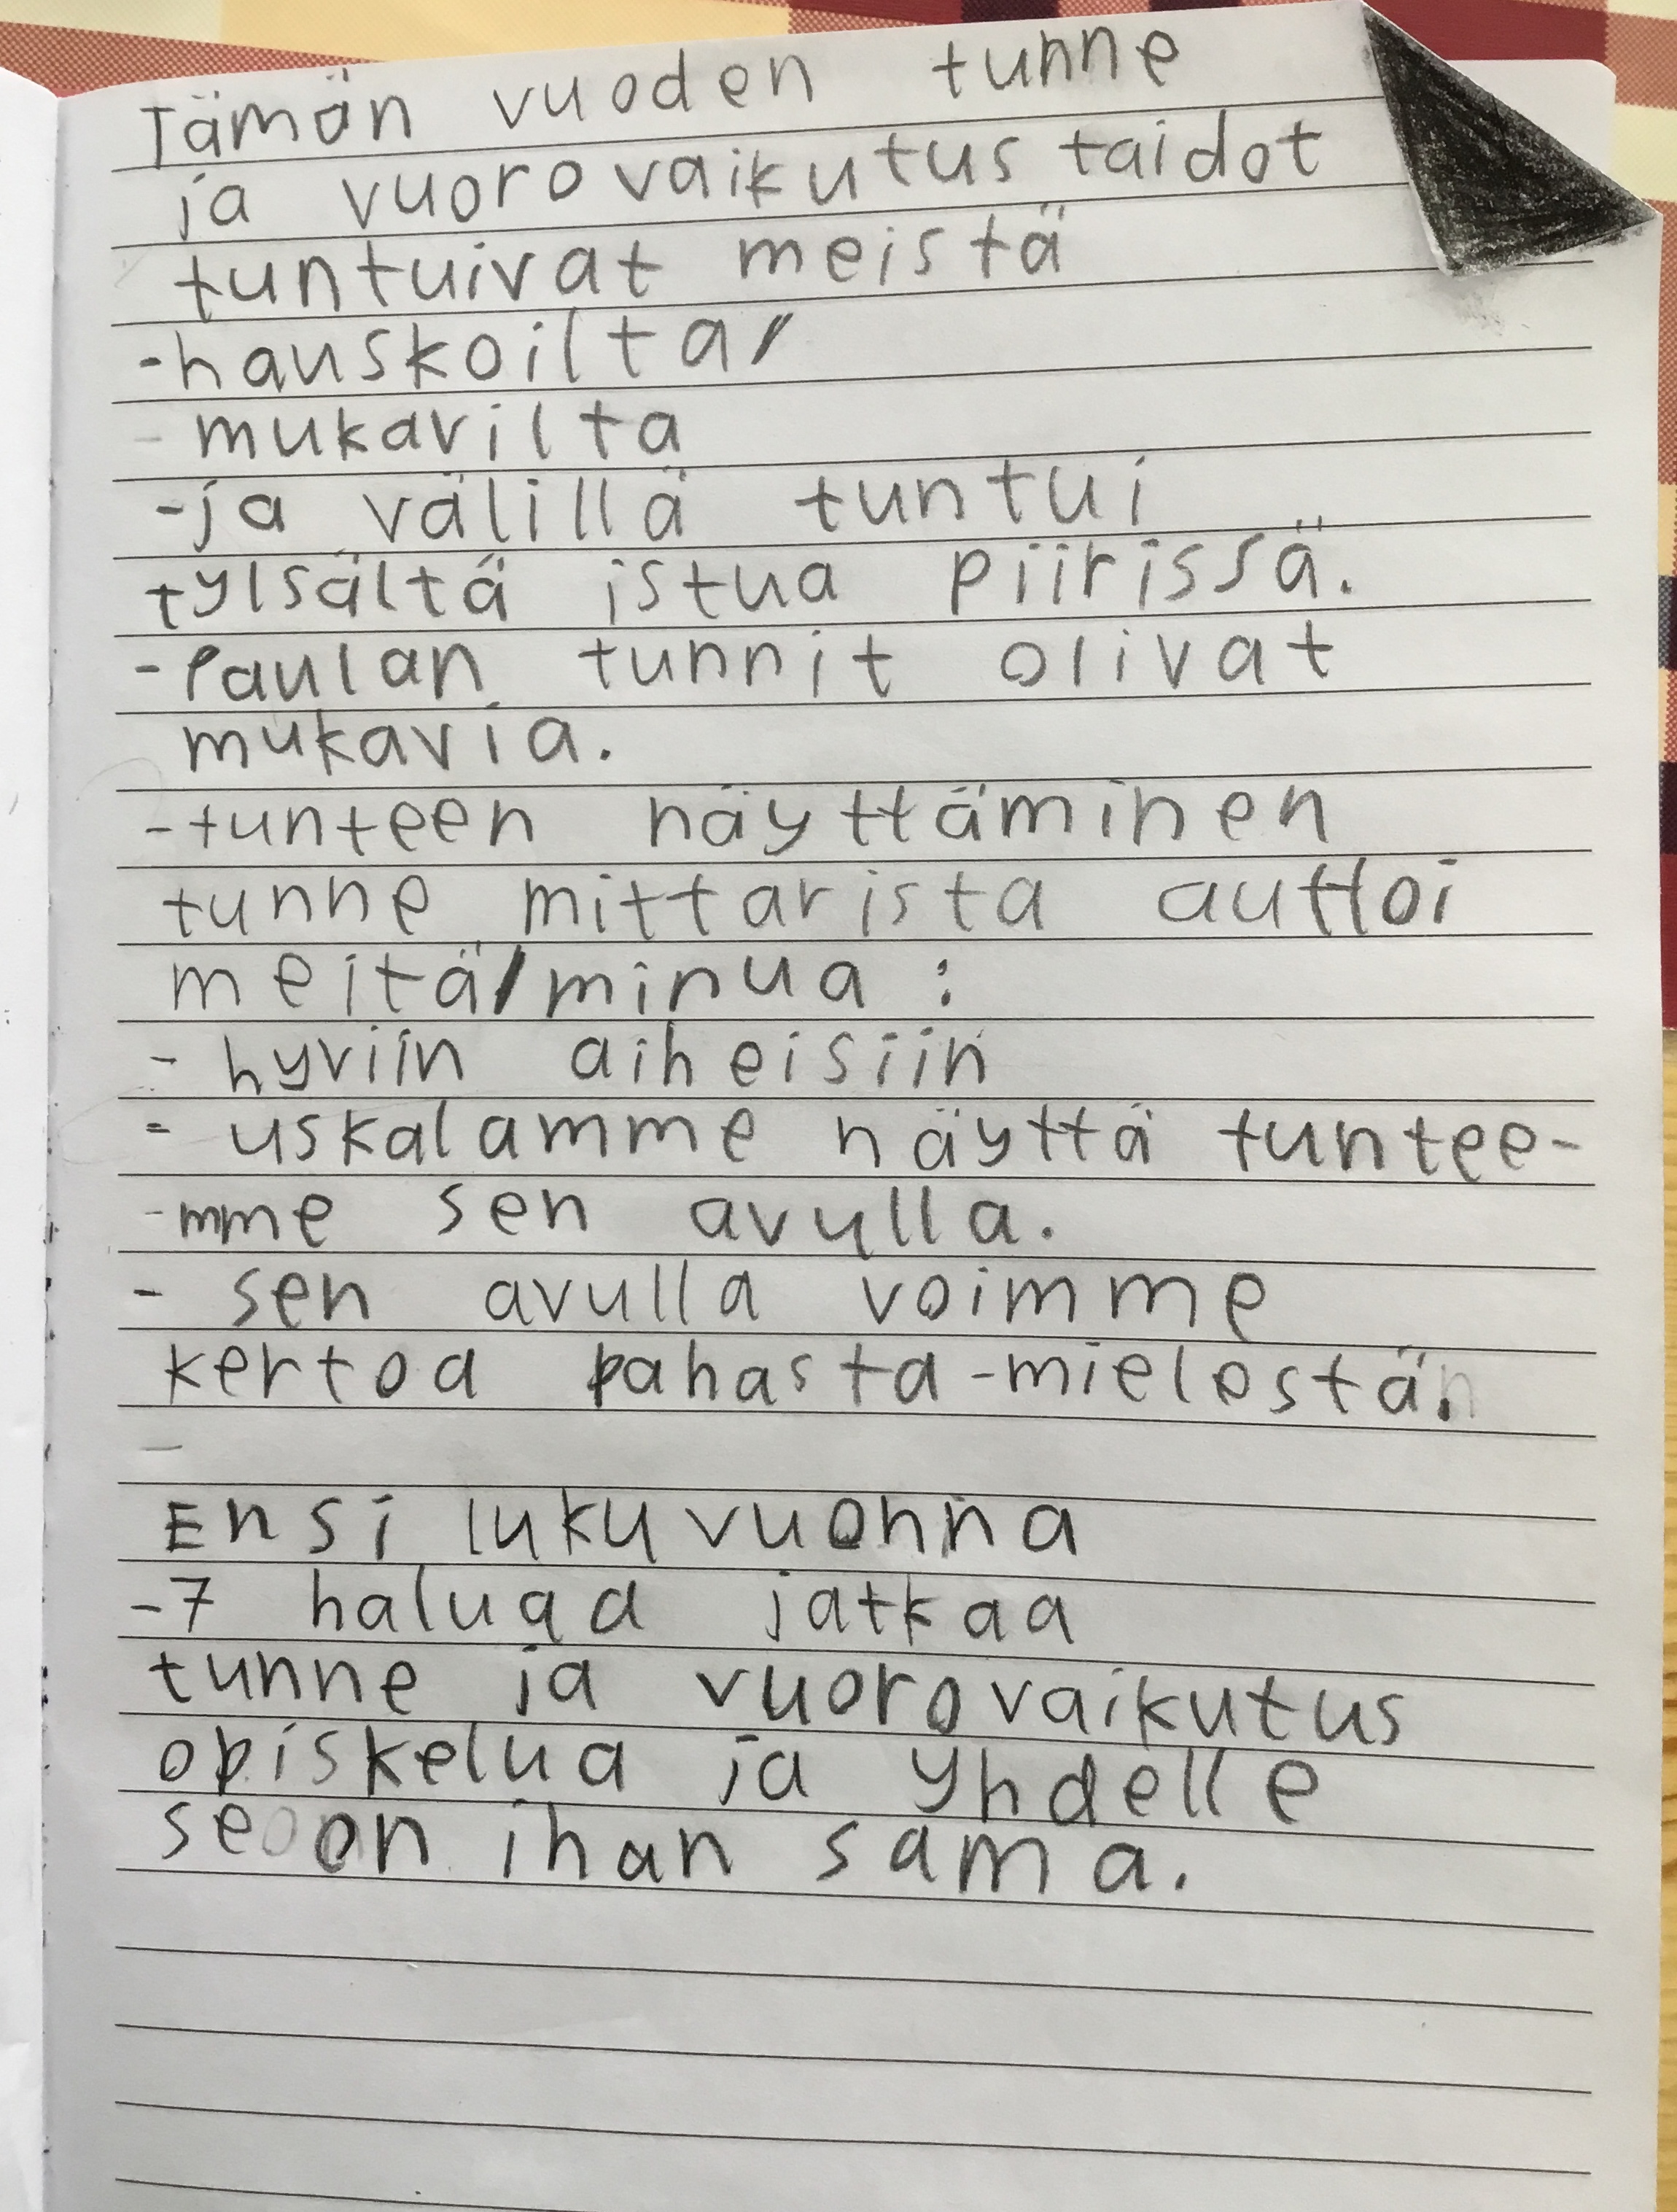 Tämän vuoden tunne
ja vuorovaikutus taidot
tuntuivat meistä
-hauskoilta,
- mukavilta
-ja välillä tuntui
tylsältä istua piirissä.
-Paulan tunnit olivat
mukavia.
-tunteen näyttäminen
tunne mittarista auttoi
meitä/minua :
- hyviin aiheisiin
- uskalamme näyttä tuntee-
-mme sen avulla.
- sen avulla voimme
kertoa pahasta-mielestä.
-
Ensi lukuvuonna
-7 haluaa jatkaa
tunne ja vuorovaikutus
opiskelua ja yhdelle
se on ihan sama.